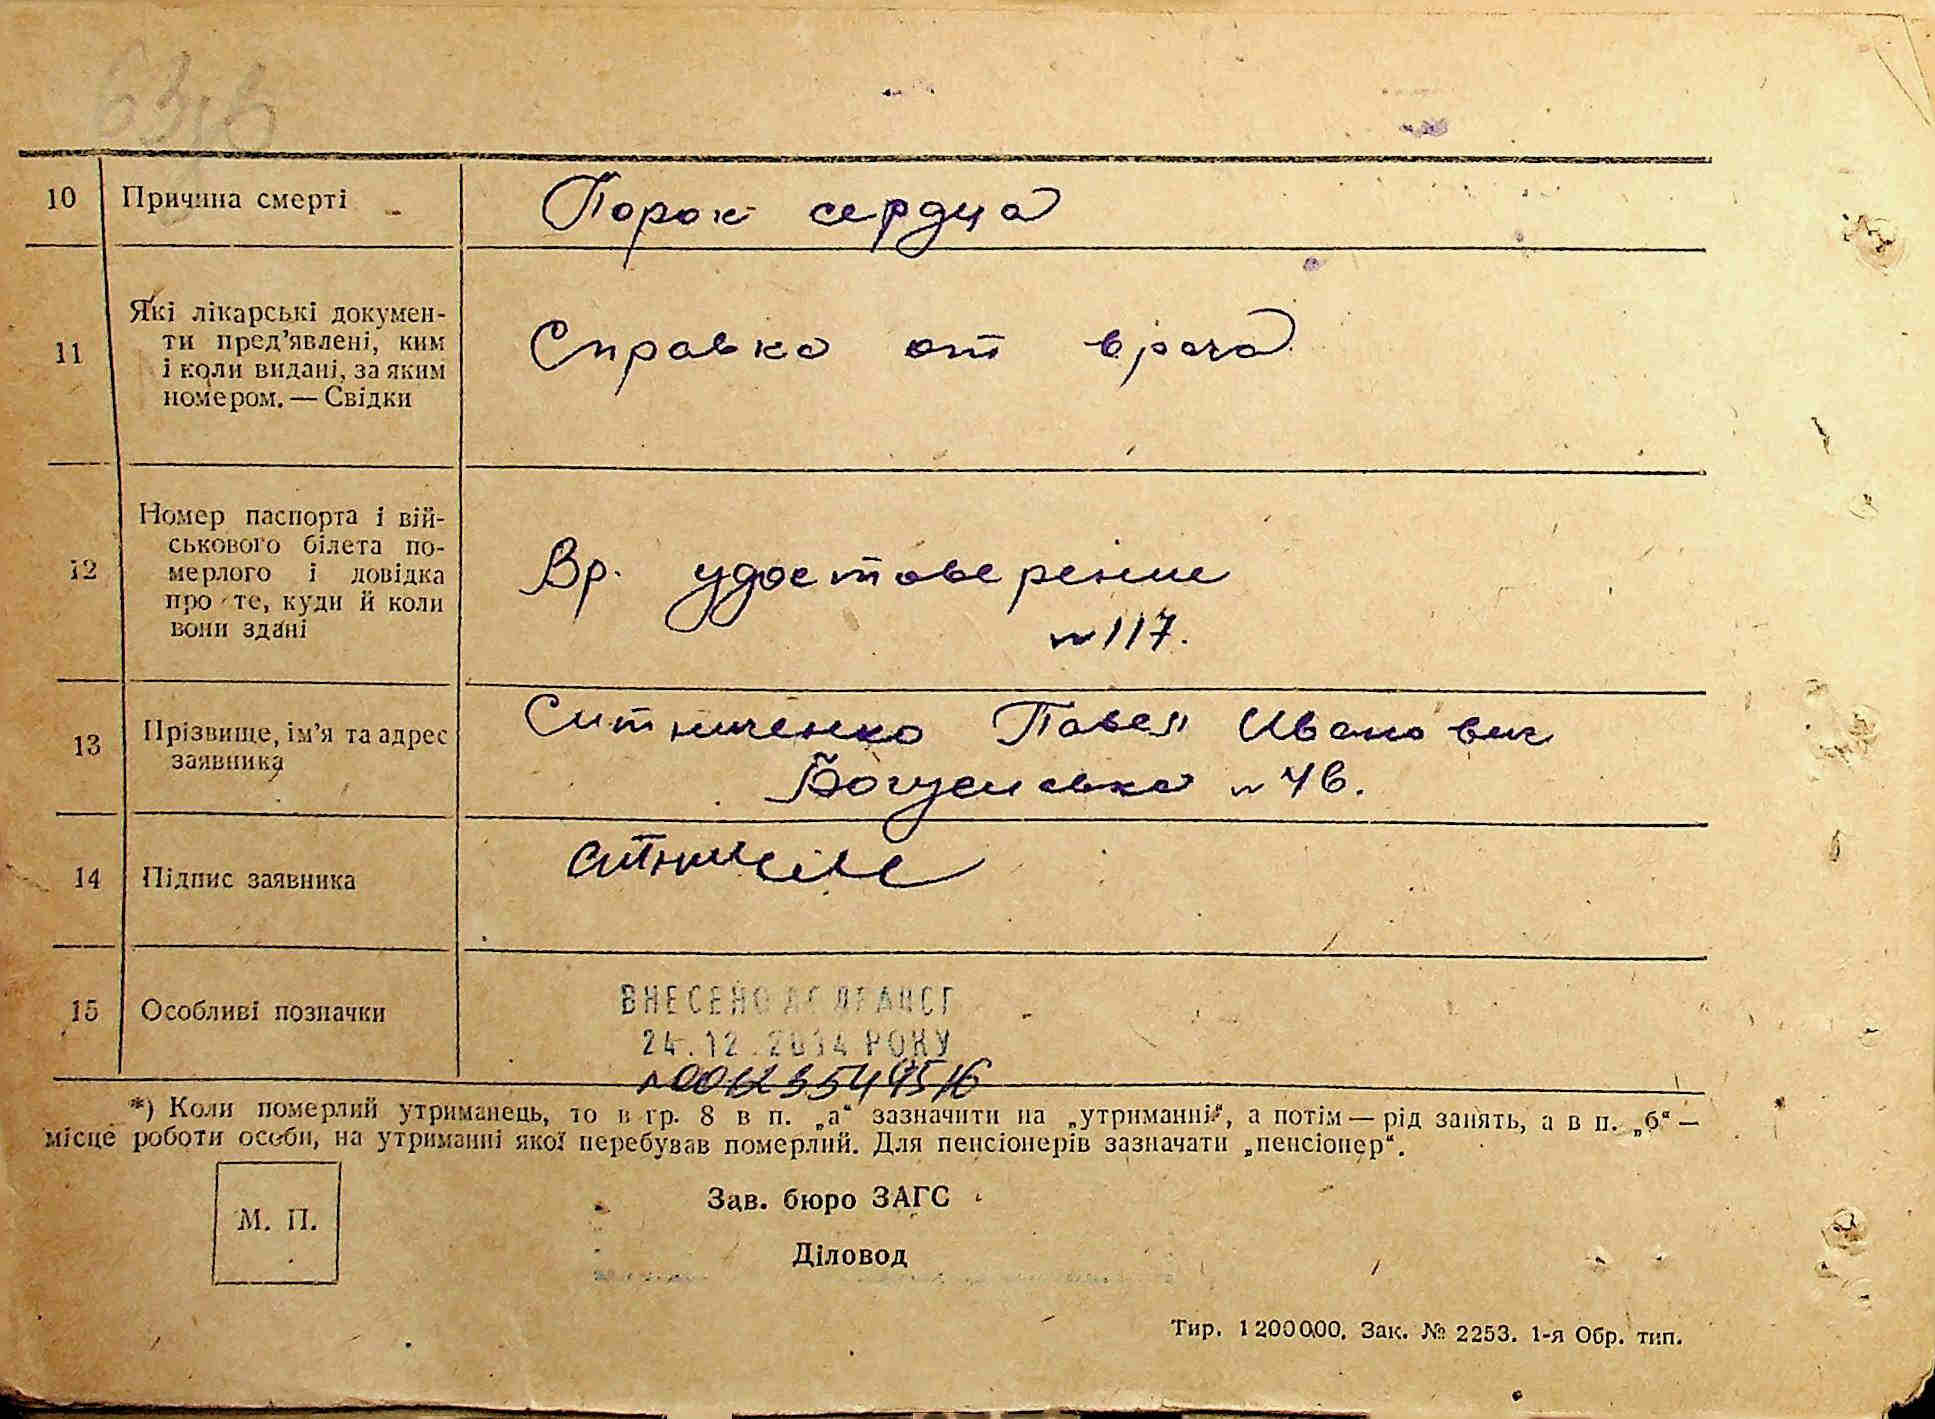 10 Причина смерті Порок сердца
11 Які лікарські докумен-
ти пред’явлені, ким
і коли видані, за яким
номером. — Свідки
Справка от врача
12 Номер паспорта і вій-
ськового білета по-
мерлого і довідка
про те, куди й коли
вони здані
Вр. удостоверение
№ 117.
13 Прізвище, ім’я та адрес
заявника
Ситниченко Павел Иванович
№ 4в.
14 Підпис заявника
15 Особливі позначки
ВНЕСЕНО ДО ДРАЦСГ
24.12.2014 РОКУ
*) Коли померлий утриманець, то в гр. 8 в п. „а“ зазначити на „утриманні“, а потім — рід занять, а в п. „б“ —
місце роботи особи, на утриманні якої перебував померлий. Для пенсіонерів зазначати „пенсіонер“.
М. П.
Зав. бюро ЗАГС
Діловод
Тир. 1200000. Зак. № 2253. 1-я Обр. тип.